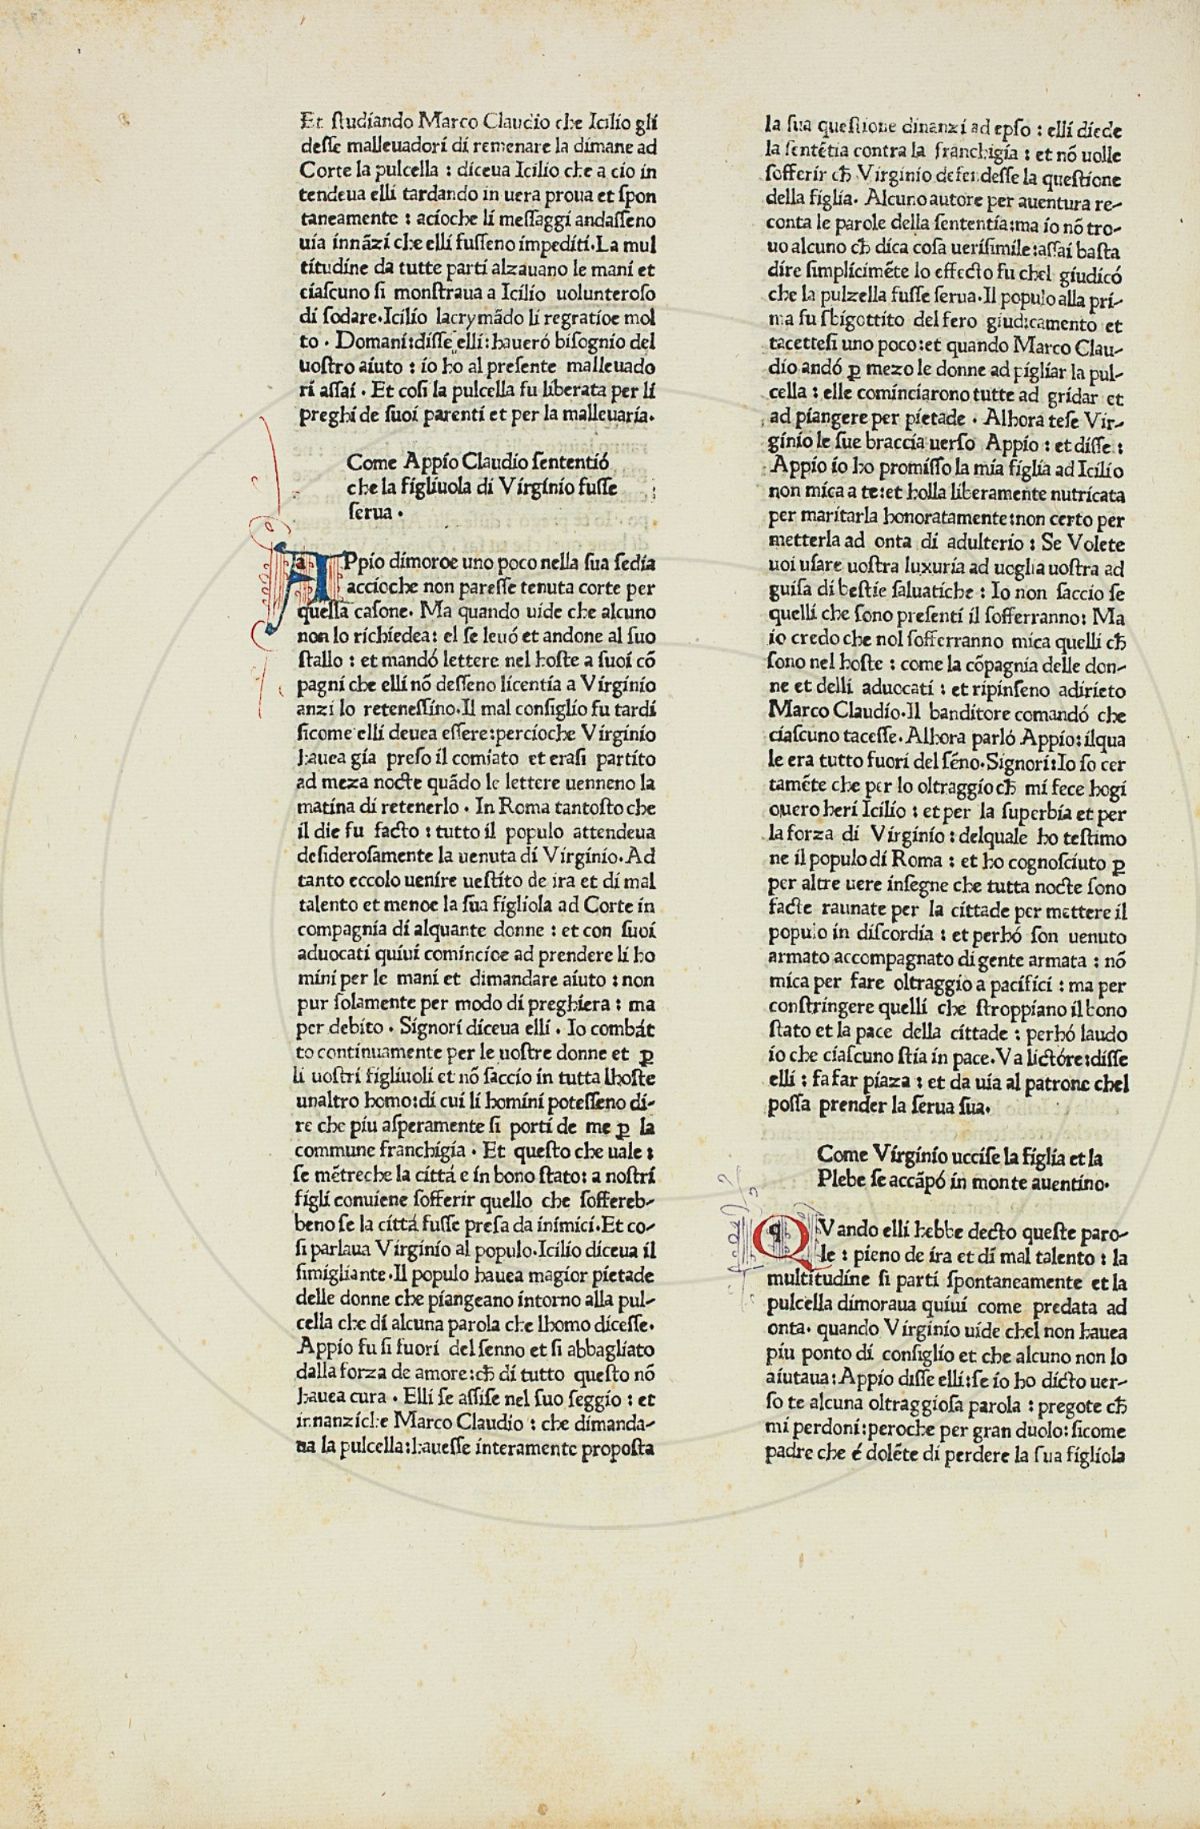 Et studiando Marco Claudio che Icilio gli
desse malleuadori di remenare la dimane ad
Corte la pulcella : diceua Icilio che a cio in
tendeua elli tardando in uera proua et spon
taneamente : acioche li messaggi andasseno
uia innãzi che elli fusseno impediti.La mul
titudine da tutte parti alzauano le mani et
ciascuno si monstraua a Icilio uolunteroso
di sodare.Icilio lacrymãdo li regratioe mol
to . Domani:disse elli:haueró bisognio del
uostro aiuto : io ho al presente malleuado
ri assai . Et cosi la pulcella fu liberata per li
preghi de suoi parenti et per la malleuaria.
Come Appio Claudio sententió
che la figliuola di Virginio fusse
serua .
APpio dimoroe uno poco nella sua sedia
accioche non paresse tenuta corte per
quella casone. Ma quando uide che alcuno
non lo richiedea: el se leuó et andone al suo
stallo : et mandó lettere nel hoste a suoi cõ
pagni che elli nõ desseno licentia a Virginio
anzi lo retenessino.Il mal consiglio fu tardi
sicome elli deuea essere:percioche Virginio
hauea gia preso il comiato et erasi partito
ad meza nocte quãdo le lettere uenneno la
matina di retenerlo . In Roma tantosto che
il die fu facto : tutto il populo attendeua
desiderosamente la uenuta di Virginio.Ad
tanto eccolo uenire uestito de ira et di mal
talento et menoe la sua figliola ad Corte in
compagnia di alquante donne : et con suoi
aduocati quiui comincioe ad prendere li ho
mini per le mani et dimandare aiuto : non
pur solamente per modo di preghiera : ma
per debito . Signori diceua elli . Io combát
to continuamente per le uostre donne et ꝑ
li uostri figliuoli et nõ saccio in tutta lhoste
unaltro homo:di cui li homini potesseno di-
re che piu asperamente si porti de me ꝑ la
commune franchigia . Et questo che uale :
se mẽtreche la cittá e in bono stato: a nostri
figli conuiene sofferir quello che soffereb-
beno se la cittá fusse presa da inimici.Et co-
si parlaua Virginio al populo.Icilio diceua il
simigliante.Il populo hauea magior pietade
delle donne che piangeano intorno alla pul-
cella che di alcuna parola che lhomo dicesse.
Appio fu si fuori del senno et si abbagliato
dalla forza de amore:cħ di tutto questo nõ
hauea cura . Elli se assise nel suo seggio : et
innanziche Marco Claudio : che dimanda-
ua la pulcella:hauesse interamente proposta
la sua questione dinanzi ad epso : elli diede
la sentẽtia contra la franchigia : et nõ uolle
sofferir cħ Virginio defendesse la questione
della figlia. Alcuno autore per auentura re-
conta le parole della sententia:ma io nõ tro-
uo alcuno cħ dica cosa uerisimile:assai basta
dire simplicimẽte lo effecto fu chel giudicó
che la pulzella fusse serua.Il populo alla pri-
ma fu sbigottito del fero giudicamento et
tacettesi uno poco:et quando Marco Clau-
dio andó ꝑ mezo le donne ad pigliar la pul-
cella : elle cominciarono tutte ad gridar et
ad piangere per pietade . Alhora tese Vir-
ginio le sue braccia uerso Appio : et disse :
Appio io ho promisso la mia figlia ad Icilio
non mica a te:et holla liberamente nutricata
per maritarla honoratamente:non certo per
metterla ad onta di adulterio : Se Volete
uoi usare uostra luxuria ad uoglia uostra ad
guisa di bestie saluatiche : Io non saccio se
quelli che sono presenti il sofferranno: Ma
io credo che nol sofferranno mica quelli cħ
sono nel hoste : come la cõpagnia delle don-
ne et delli aduocati : et ripinseno adirieto
Marco Claudio.Il banditore comandó che
ciascuno tacesse.Alhora parló Appio:ilqua
le era tutto fuori del sẽno.Signori:Io so cer
tamẽte che per lo oltraggio cħ mi fece hogi
ouero heri Icilio : et per la superbia et per
la forza di Virginio : delquale ho testimo
ne il populo di Roma : et ho cognosciuto ꝑ
per altre uere insegne che tutta nocte sono
facte raunate per la cittade per mettere il
populo in discordia : et perhó son uenuto
armato accompagnato di gente armata : nõ
mica per fare oltraggio a pacifici : ma per
constringere quelli che stroppiano il bono
stato et la pace della cittade : perhó laudo
io che ciascuno stia in pace.Va lictóre:disse
elli : fa far piaza : et da uia al patrone chel
possa prender la serua sua.
Come Virginio uccise la figlia et la
Plebe se accãpó in monte auentino.
QVando elli hebbe decto queste paro-
le : pieno de ira et di mal talento : la
multitudine si parti spontaneamente et la
pulcella dimoraua quiui come predata ad
onta. quando Virginio uide chel non hauea
piu ponto di consiglio et che alcuno non lo
aiutaua:Appio disse elli:se io ho dicto uer-
so te alcuna oltraggiosa parola : pregote cħ
mi perdoni:peroche per gran duolo:sicome
padre che é dolẽte di perdere la sua figliola